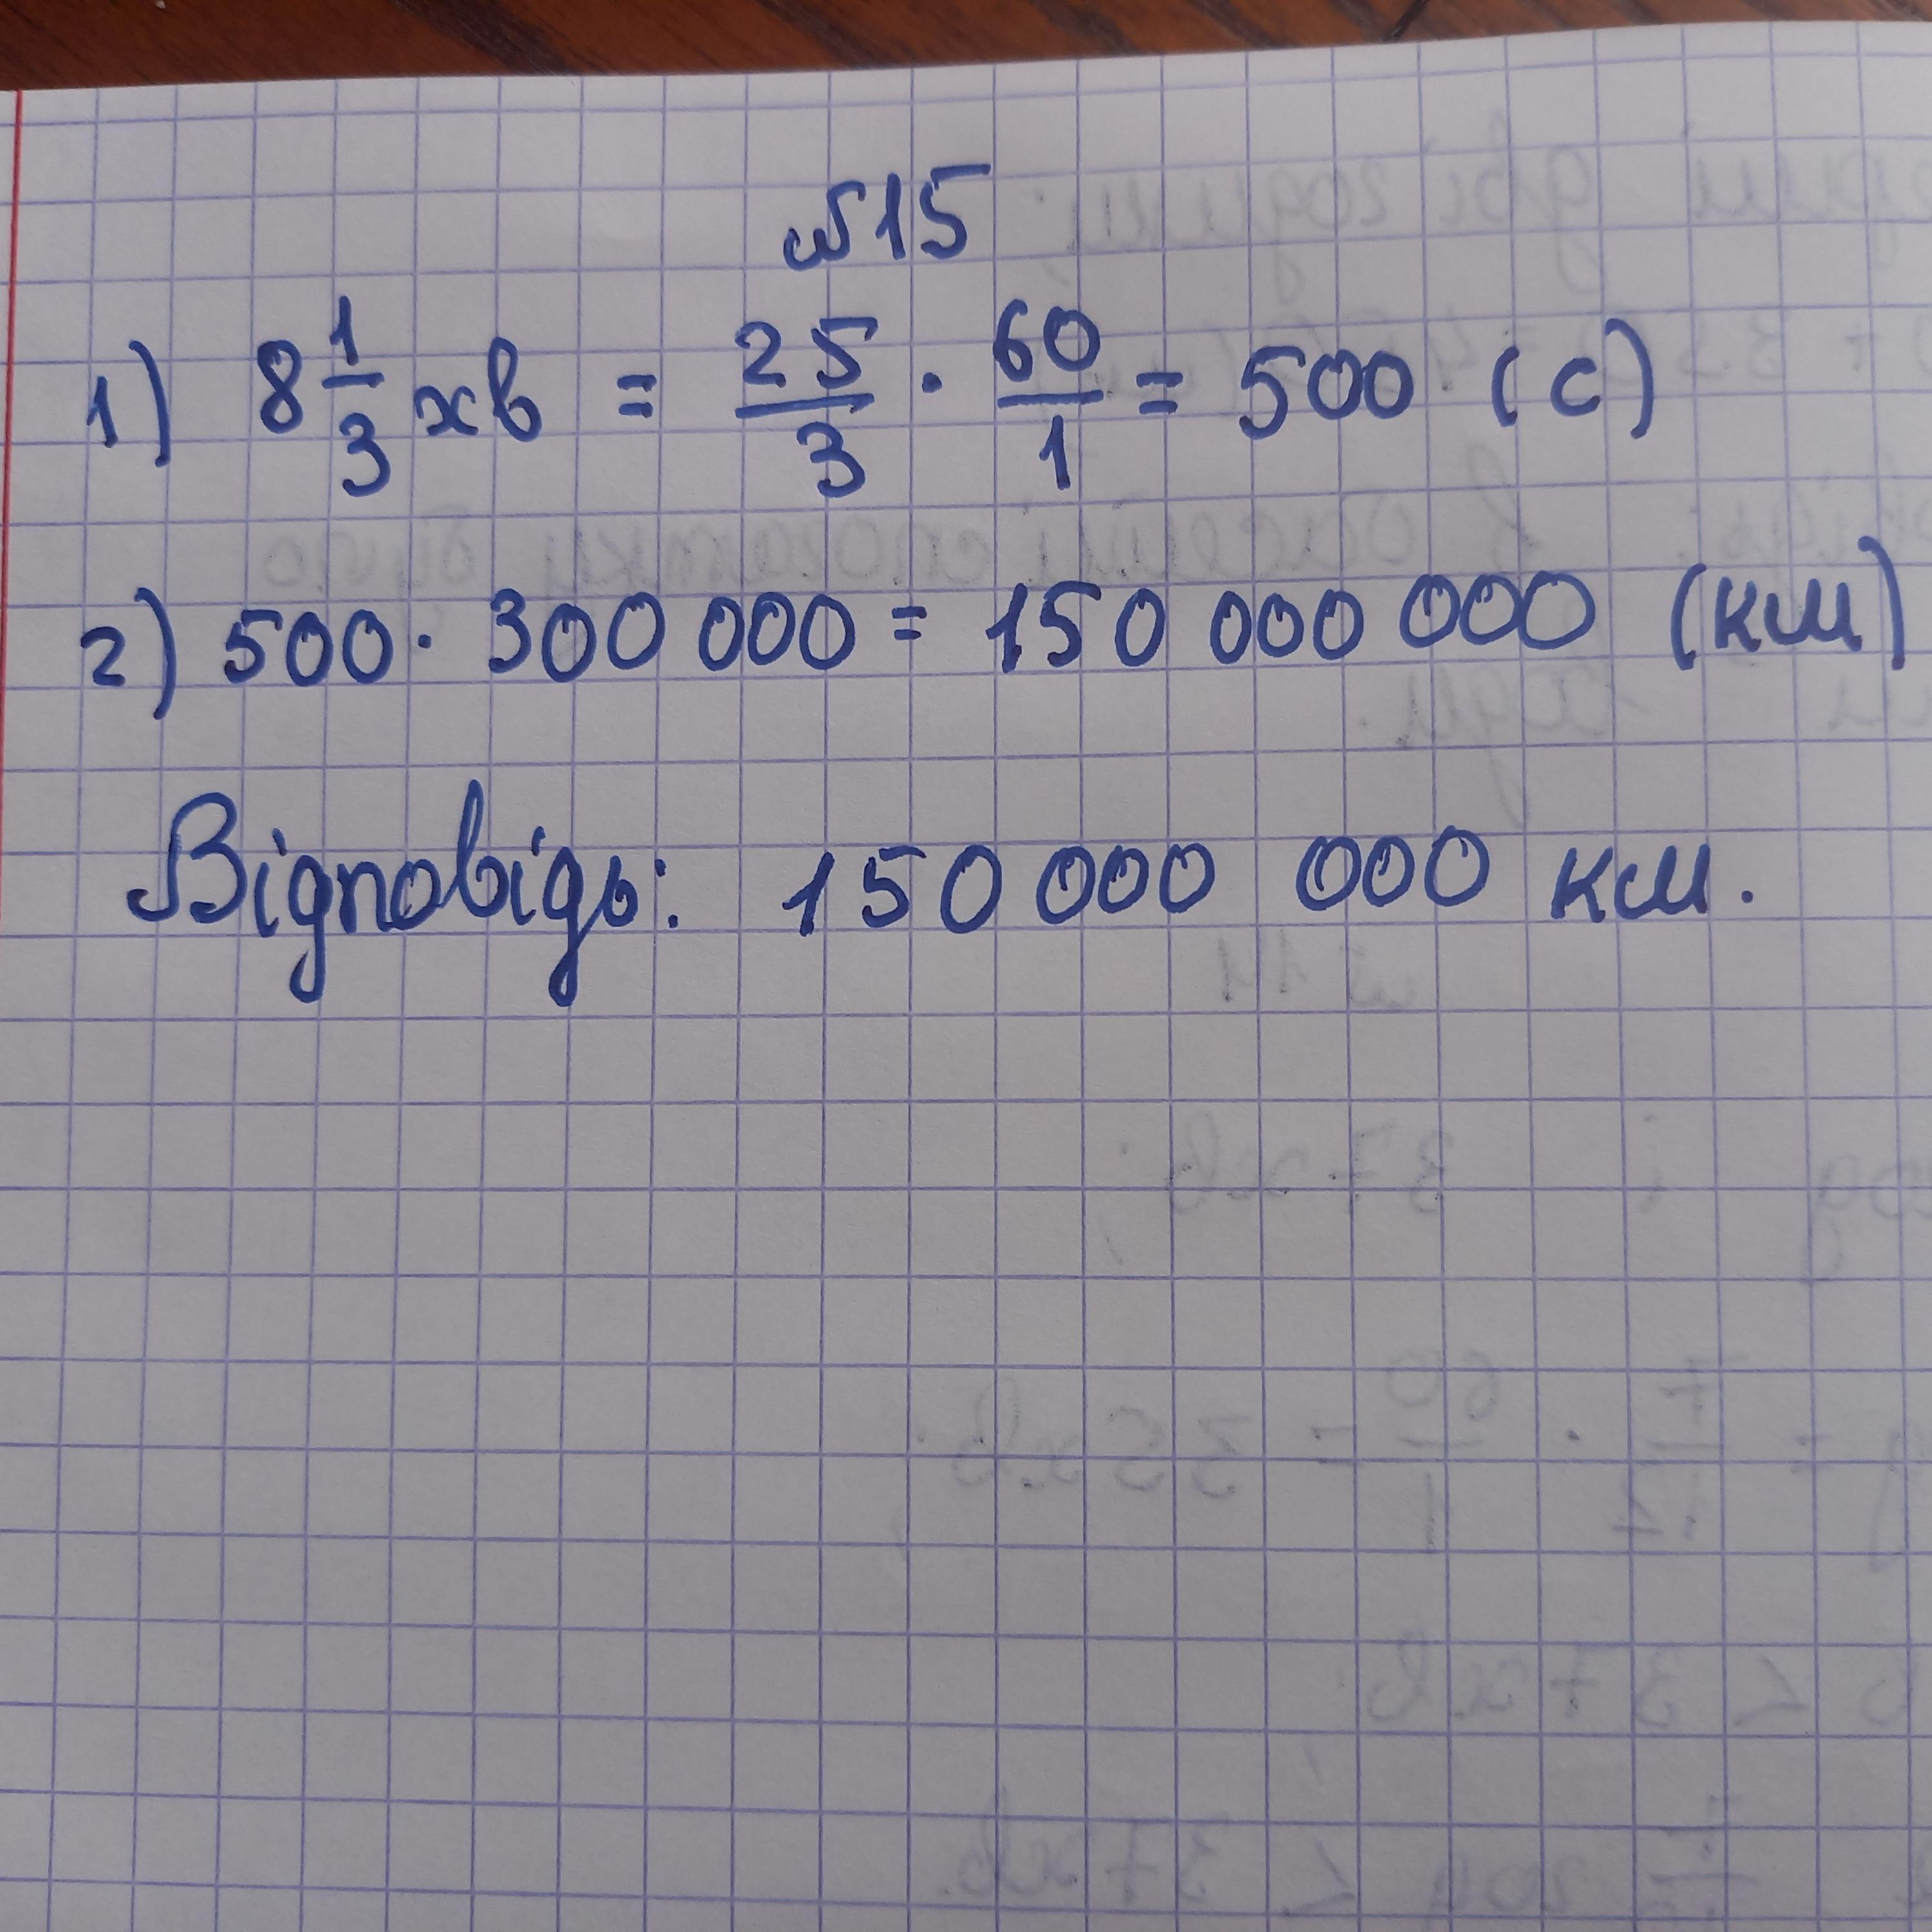 №15
1) 8 1/3 хв = 25/3 · 60/1 = 500 (с)
2) 500 · 300 000 = 150 000 000 (км)
Відповідь: 150 000 000 км.